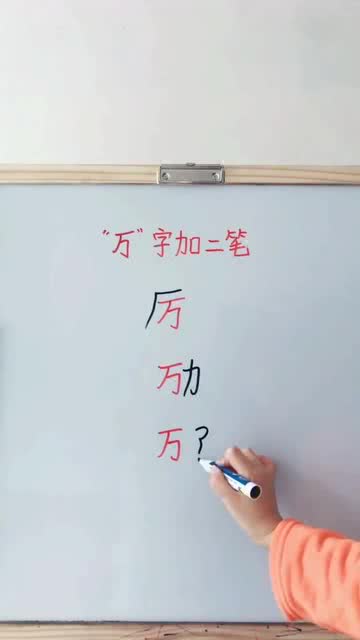 "万"字加二笔
厉
励
万?